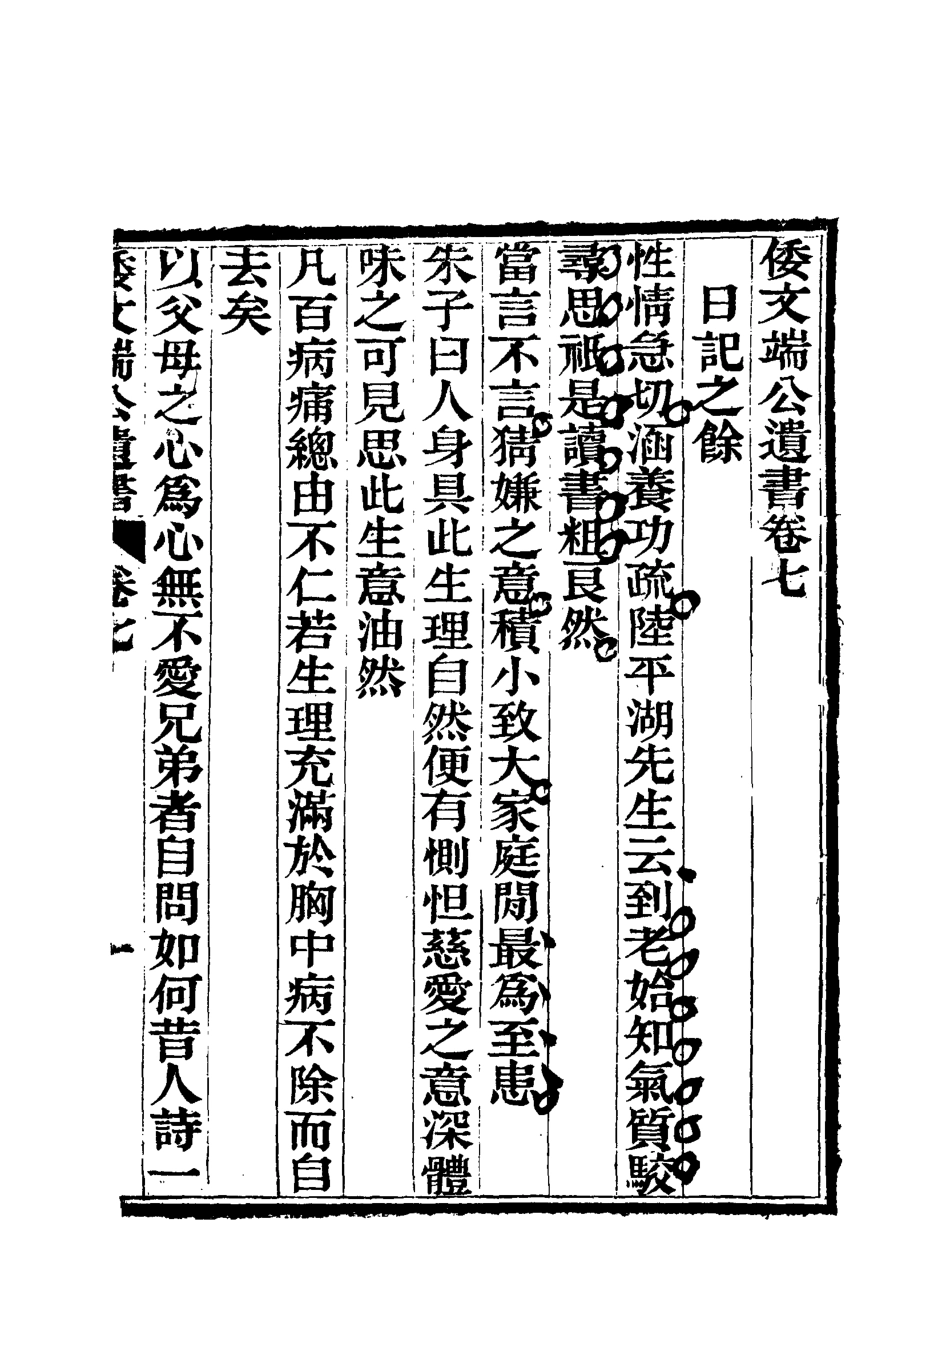 倭文端公遺書卷七
日記之餘
性情急切涵養功疏陸平湖先生云到老始知氣質駁
尋思祇是讀書粗良然
當言不言猜嫌之意積小致大家庭閒最爲至患
朱子曰人身具此生理自然便有惻怛慈愛之意深體
味之可見思此生意油然
凡百病痛總由不仁若生理充滿於胸中病不除而自
去矣
以父母之心爲心無不愛兄弟者自問如何昔人詩一
倭文端公遺書 卷七 一